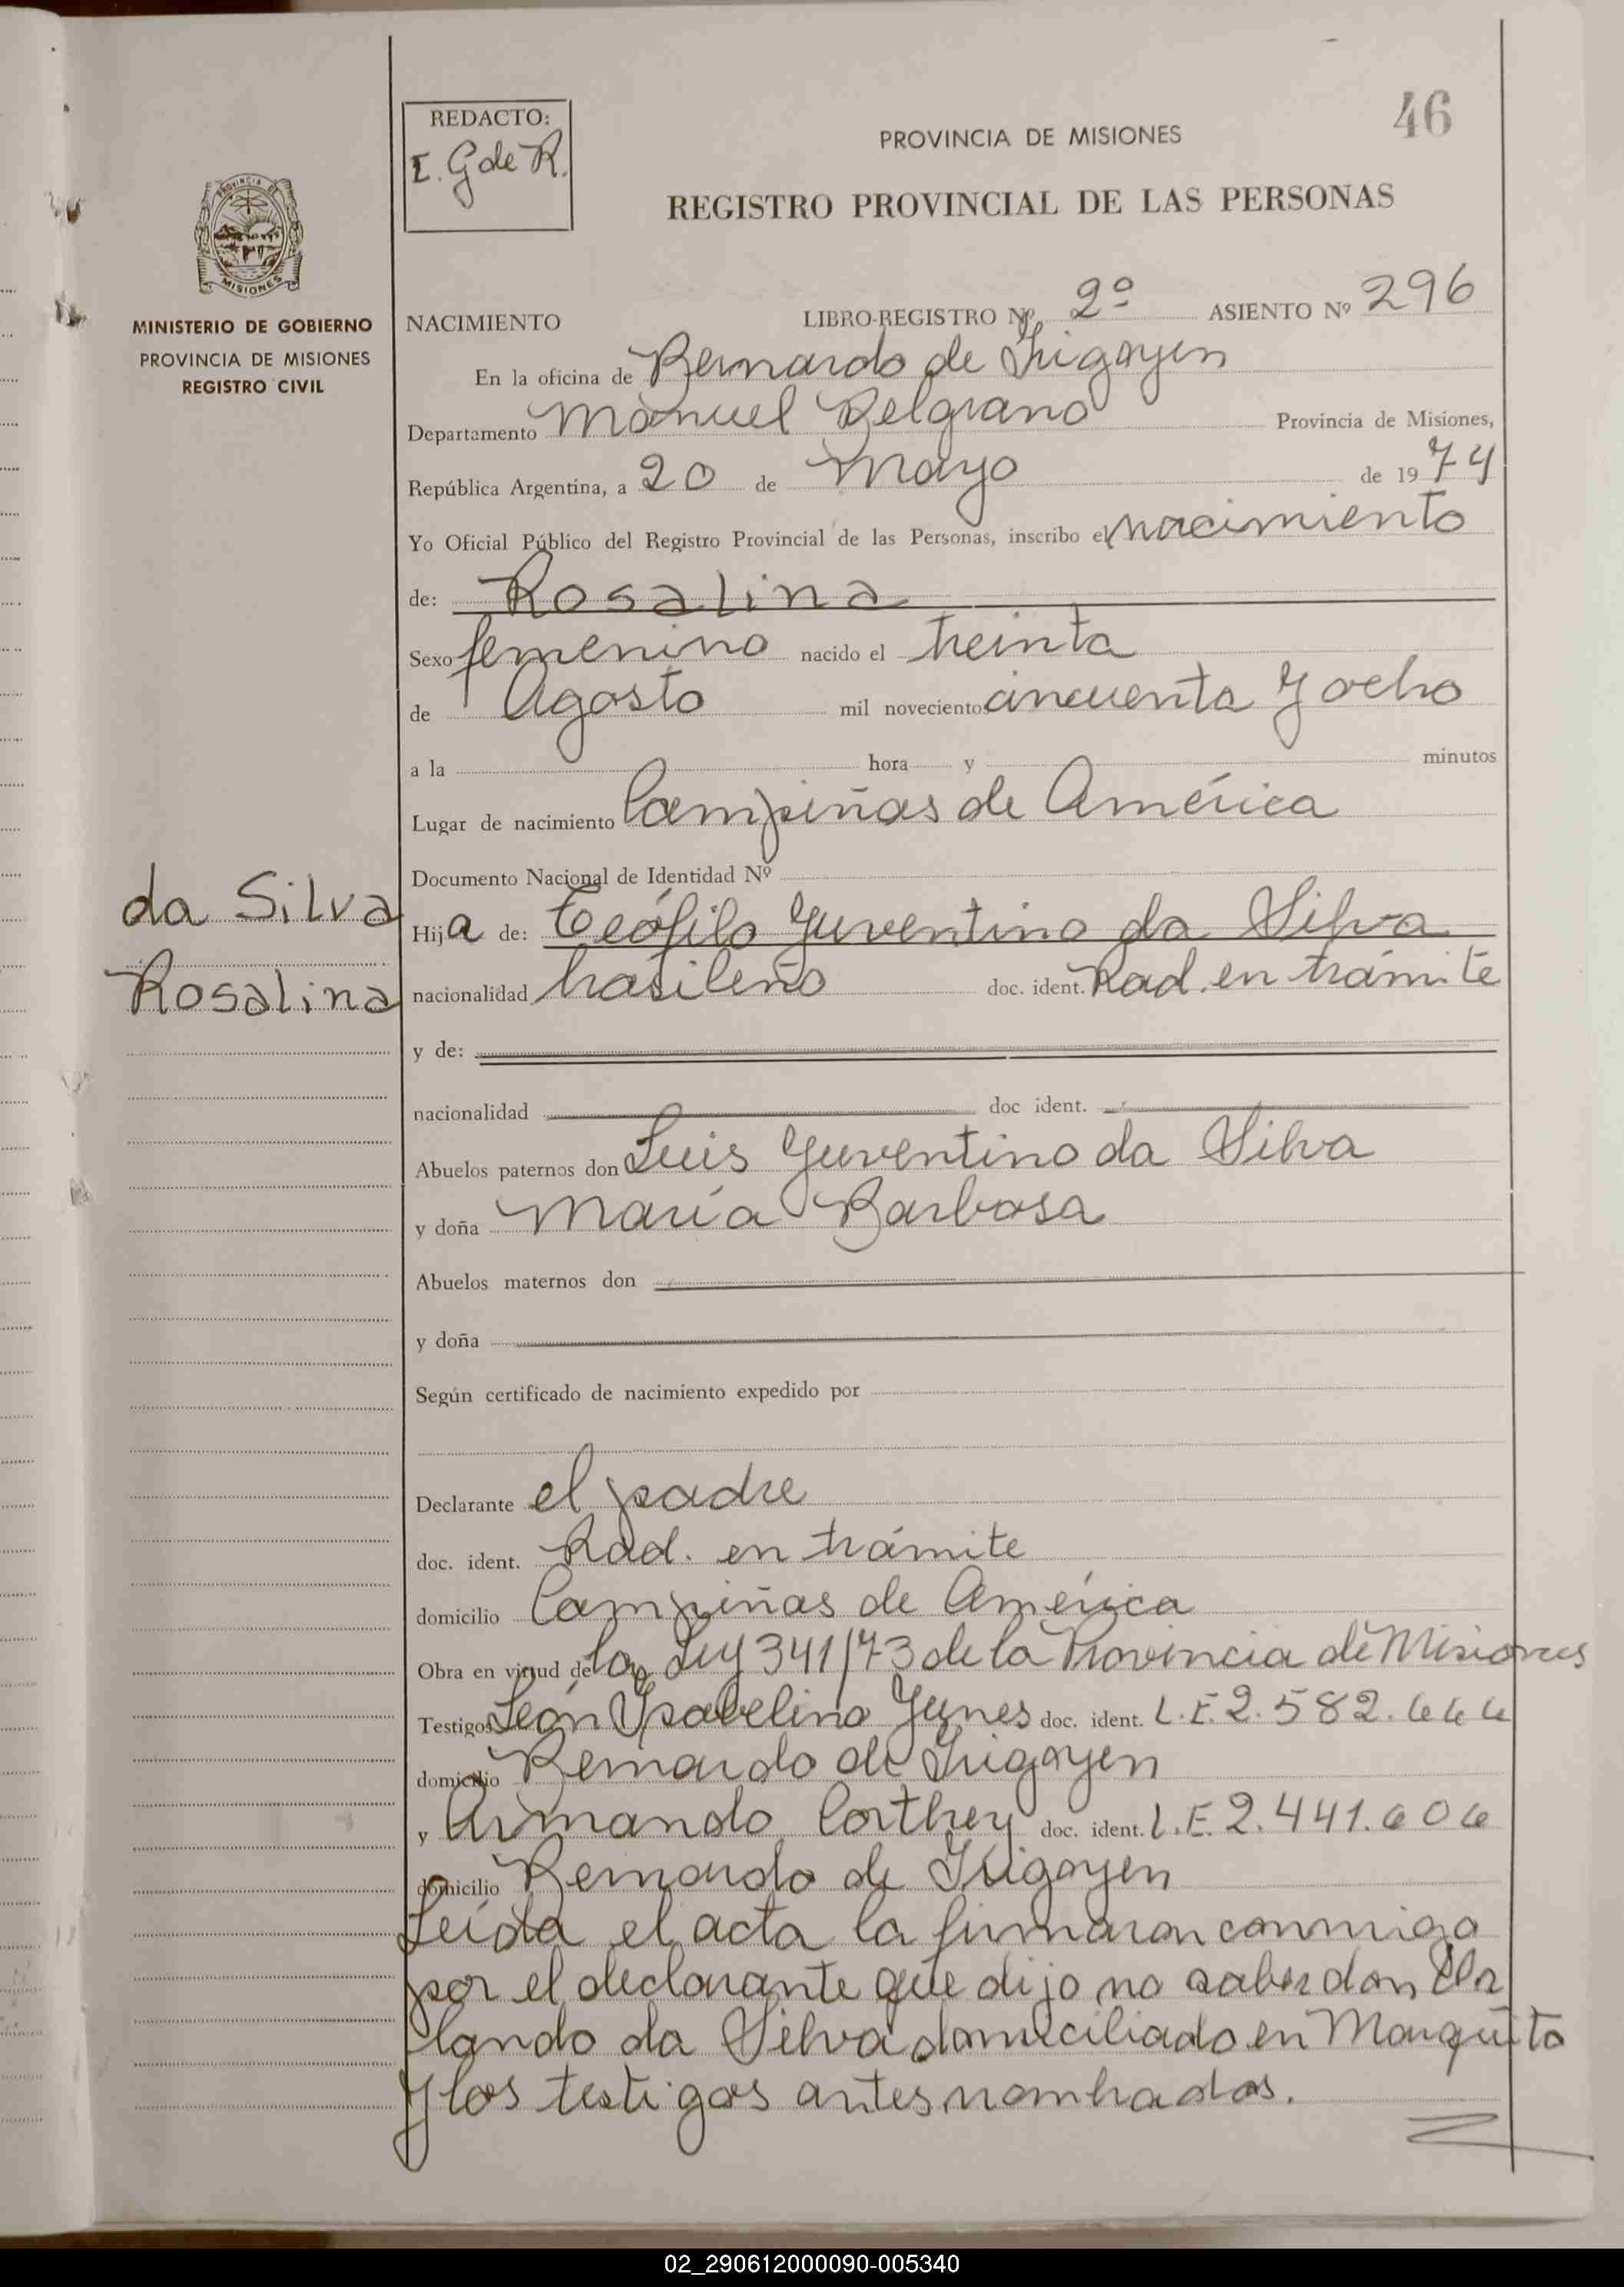 46
REDACTO:
I. G de R.
PROVINCIA DE MISIONES
REGISTRO PROVINCIAL DE LAS PERSONAS
PROVINCIA DE
MISIONES
MINISTERIO DE GOBIERNO
PROVINCIA DE MISIONES
REGISTRO CIVIL
NACIMIENTO LIBRO-REGISTRO Nº 2º ASIENTO Nº 296
En la oficina de Bernardo de Irigoyen
Departamento Manuel Belgrano Provincia de Misiones,
República Argentina, a 20 de Mayo de 1974
Yo Oficial Público del Registro Provincial de las Personas, inscribo el nacimiento
de: Rosalina
Sexo femenino nacido el treinta
de Agosto mil novecientos cincuenta y ocho
a la hora y minutos
Lugar de nacimiento Campiñas de América
Documento Nacional de Identidad Nº
da Silva
Rosalina
Hija de: Teófilo Yuventino da Silva
nacionalidad brasileño doc. ident. Rad. en trámite
y de:
nacionalidad doc ident.
Abuelos paternos don Luis Yuventino da Silva
y doña María Barbosa
Abuelos maternos don
y doña
Según certificado de nacimiento expedido por
Declarante el padre
doc. ident. Rad. en trámite
domicilio Campiñas de América
Obra en virtud de la Ley 341/73 de la Provincia de Misiones
Testigos León Ysabelino Yunes doc. ident. L.E. 2.582.666
domicilio Bernardo de Irigoyen
y Armando Corthey doc. ident. L.E. 2.441.606
domicilio Bernardo de Irigoyen
Leída el acta la firmaron conmigo
por el declarante que dijo no saber don
lando da Silva domiciliado en Marquito
y los testigos antes nombrados.
02_290612000090-005340